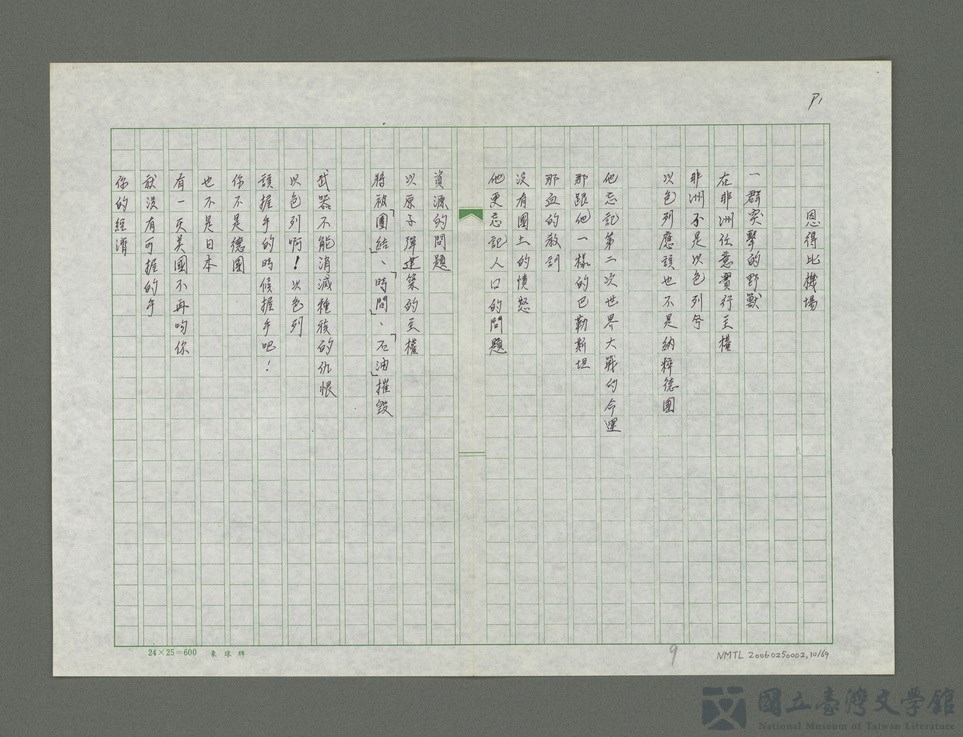 P1
恩得比機場
一群突擊的野獸
在非洲任意實行主權
非洲不是以色列爷
以色列應該也不是納粹德國
他忘記第二次世界大戰的命運
那跟他一樣的巴勒斯坦
那血的教訓
沒有國土的憤怒
他更忘記人口的問題
資源的問題
以原子彈建築的主權
將被「團結」、「時間」、「石油」摧毀
武器不能消滅種族的仇恨
以色列啊！以色列
該握手的時候握手吧！
你不是德國
也不是日本
有一天美國不再吻你
就沒有可握的手
你的經濟
24×25=600 東球牌
9
NMTL 20060250002,10/69
國立臺灣文學館
National Museum of Taiwan Literature